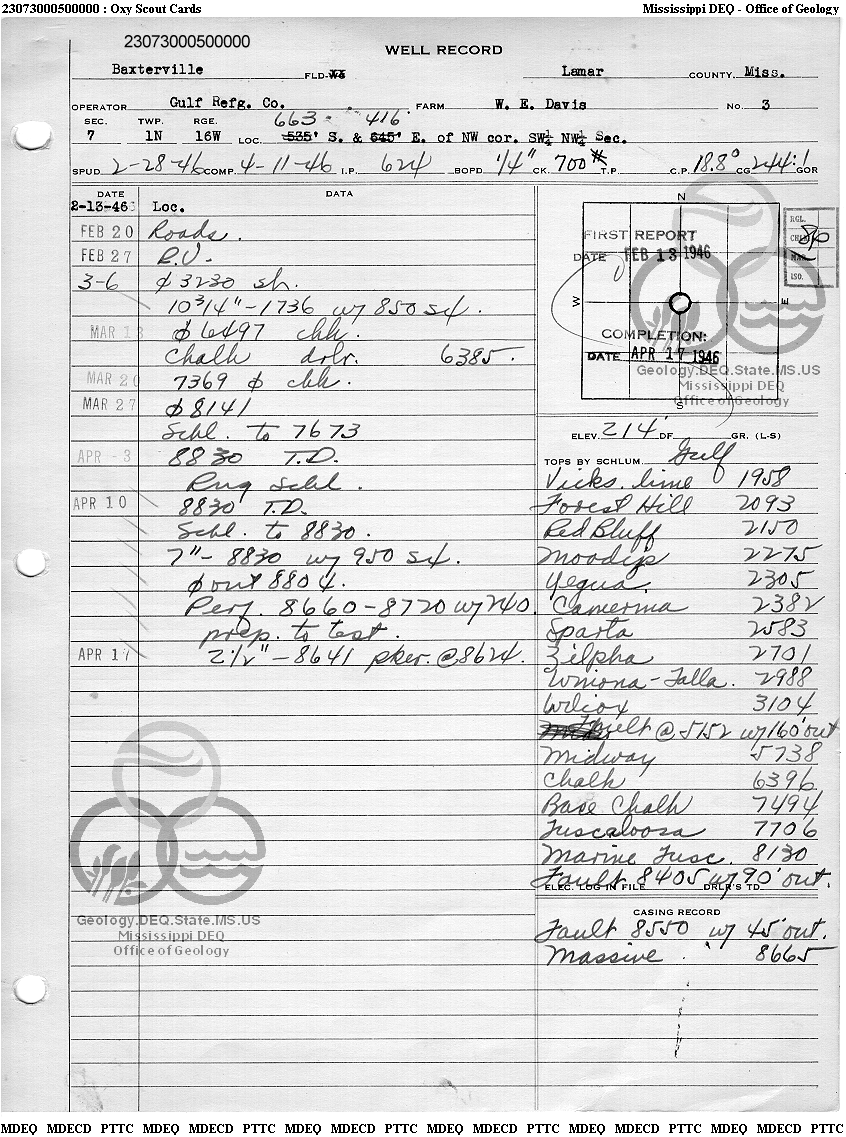 23073000500000 : Oxy Scout Cards
Mississippi DEQ - Office of Geology
23073000500000
WELL RECORD
Baxterville FLD. Lamar COUNTY, Miss.
OPERATOR Gulf Refg. Co. FARM W. E. Davis NO. 3
663 416
SEC. TWP. RGE.
7 1N 16W LOC. 535' S. & 645' E. of NW cor. SW¼ NW¼ Sec.
SPUD. 2-28-46 COMP. 4-11-46 I.P. 624 BOPD 1/4" CK. 700# T.P. C.P. 18.8° CG 244:1 GOR
DATE DATA
2-13-46 Loc.
FEB 20 Roads.
FEB 27 R.U.
3-6 ф 3230 sh.
10 3/4" - 1736 w/ 850 sx.
MAR 13 ф 6497 chk.
Chalk drlr. 6385.
MAR 20 7369 ф chk.
MAR 27 ф 8141
Schl. to 7673
APR -3 8830 T.D.
Rng Schl.
APR 10 8830 T.D.
Schl. to 8830.
7" - 8830 w/ 950 sx.
ф out 8804.
Perf. 8660-8720 w/240.
prep. to test.
APR 17 2½" - 8641 pker. @ 8624.
N
FIRST REPORT
DATE FEB 13 1946
W E
COMPLETION:
DATE APR 17 1946
S
RGL.
CHK
MAP
ISO.
Geology.DEQ.State.MS.US
Mississippi DEQ
Office of Geology
ELEV. 214' DF. GR. (L-S)
TOPS BY SCHLUM. Gulf
Vicks. lime 1958
Forest Hill 2093
Red Bluff 2150
Moodys 2275
Yegua 2305
Camerina 2382
Sparta 2583
Zilpha 2701
Winona-Talla. 2988
Wilcox 3104
Fault @ 5152 w/160' out
Midway 5738
Chalk 6396
Base Chalk 7494
Tuscaloosa 7706
Marine Tusc. 8130
Fault 8405 w/90' out.
ELEC. LOG IN FILE DRLR'S TD
CASING RECORD
Fault 8550 w/ 45' out.
Massive 8665
Geology.DEQ.State.MS.US
Mississippi DEQ
Office of Geology
MDEQ MDECD PTTC MDEQ MDECD PTTC MDEQ MDECD PTTC MDEQ MDECD PTTC MDEQ MDECD PTTC MDEQ MDECD PTTC